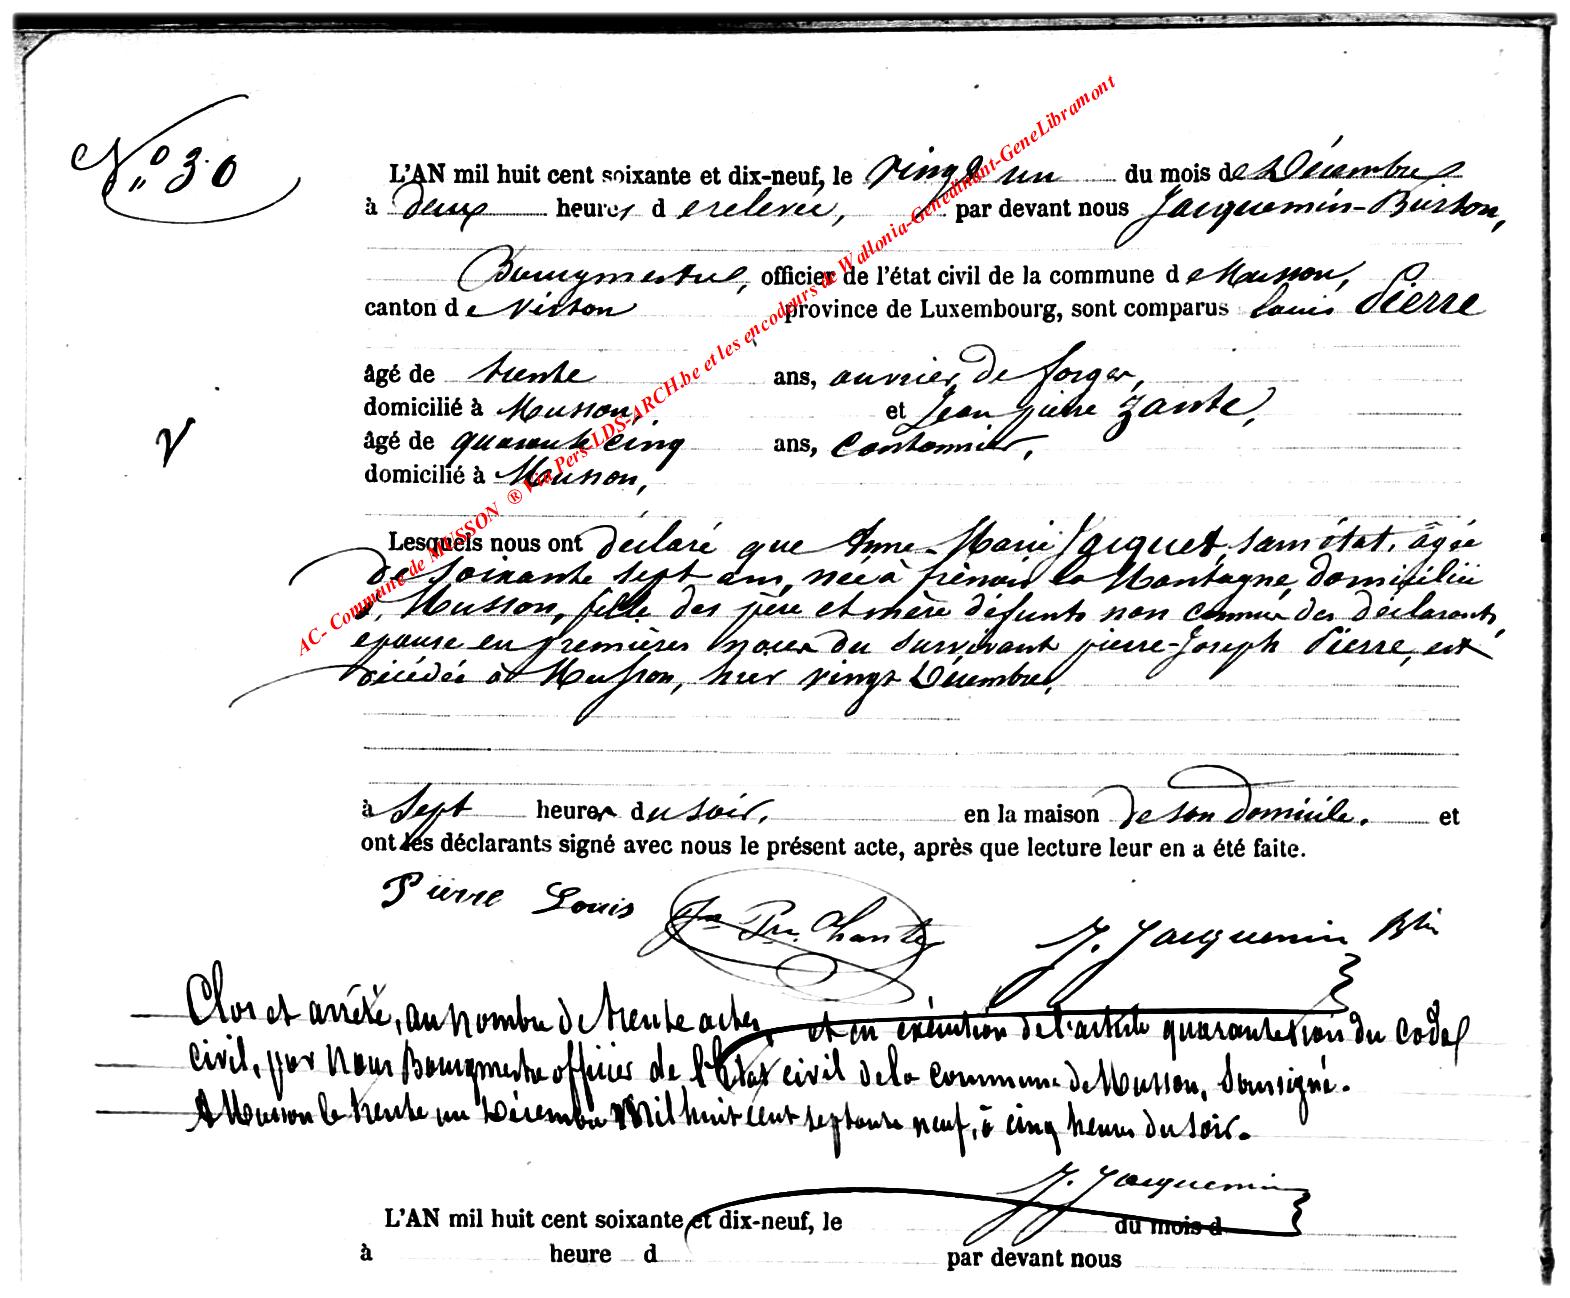 N° 30
L'AN mil huit cent soixante et dix-neuf, le vingt un du mois de Décembre
à deux heures d e relevée, par devant nous Jacquemin-Burton,
Bourgmestre, officier de l'état civil de la commune d e Musson,
canton d e Virton province de Luxembourg, sont comparus Louis Pierre
âgé de trente ans, ouvrier de forges,
domicilié à Musson, et Jean pierre Zante,
âgé de quarante cinq ans, Cantonnier,
domicilié à Musson,
Lesquels nous ont déclaré que Anne-Marie Jacquet, sans état, âgée
de soixante sept ans, née à frénois la Montagne, domiciliée
à Musson, fille des père et mère défunts non connus des déclarants,
épouse en premières noces du survivant pierre-Joseph Pierre, est
décédée à Musson, hier vingt Décembre,
à Sept heures du soir, en la maison de son domicile. et
ont les déclarants signé avec nous le présent acte, après que lecture leur en a été faite.
Pierre Louis Jn Prre Chante J. Jacquemin
Clos et arrêté, au nombre de trente actes, et en exécution de l'article quarante trois du code
civil, par Nous Bourgmestre officier de l'Etat civil de la commune de Musson, Soussigné.
A Musson le trente un Décembre Mil huit cent septante neuf, à cinq heures du soir.
J. Jacquemin
L'AN mil huit cent soixante et dix-neuf, le du mois d
à heure d par devant nous
AC- Commune de MUSSON ® Via Pers-LDS-ARCH.be et les encodeurs de Wallonia-Genedinant-GeneLibramont